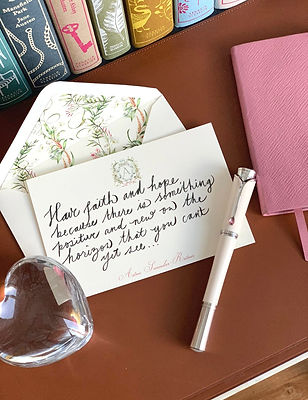 Mansfield Park
Jane Austen
Have faith and hope
because there is something
positive and new on the
horizon that you can't
yet see...